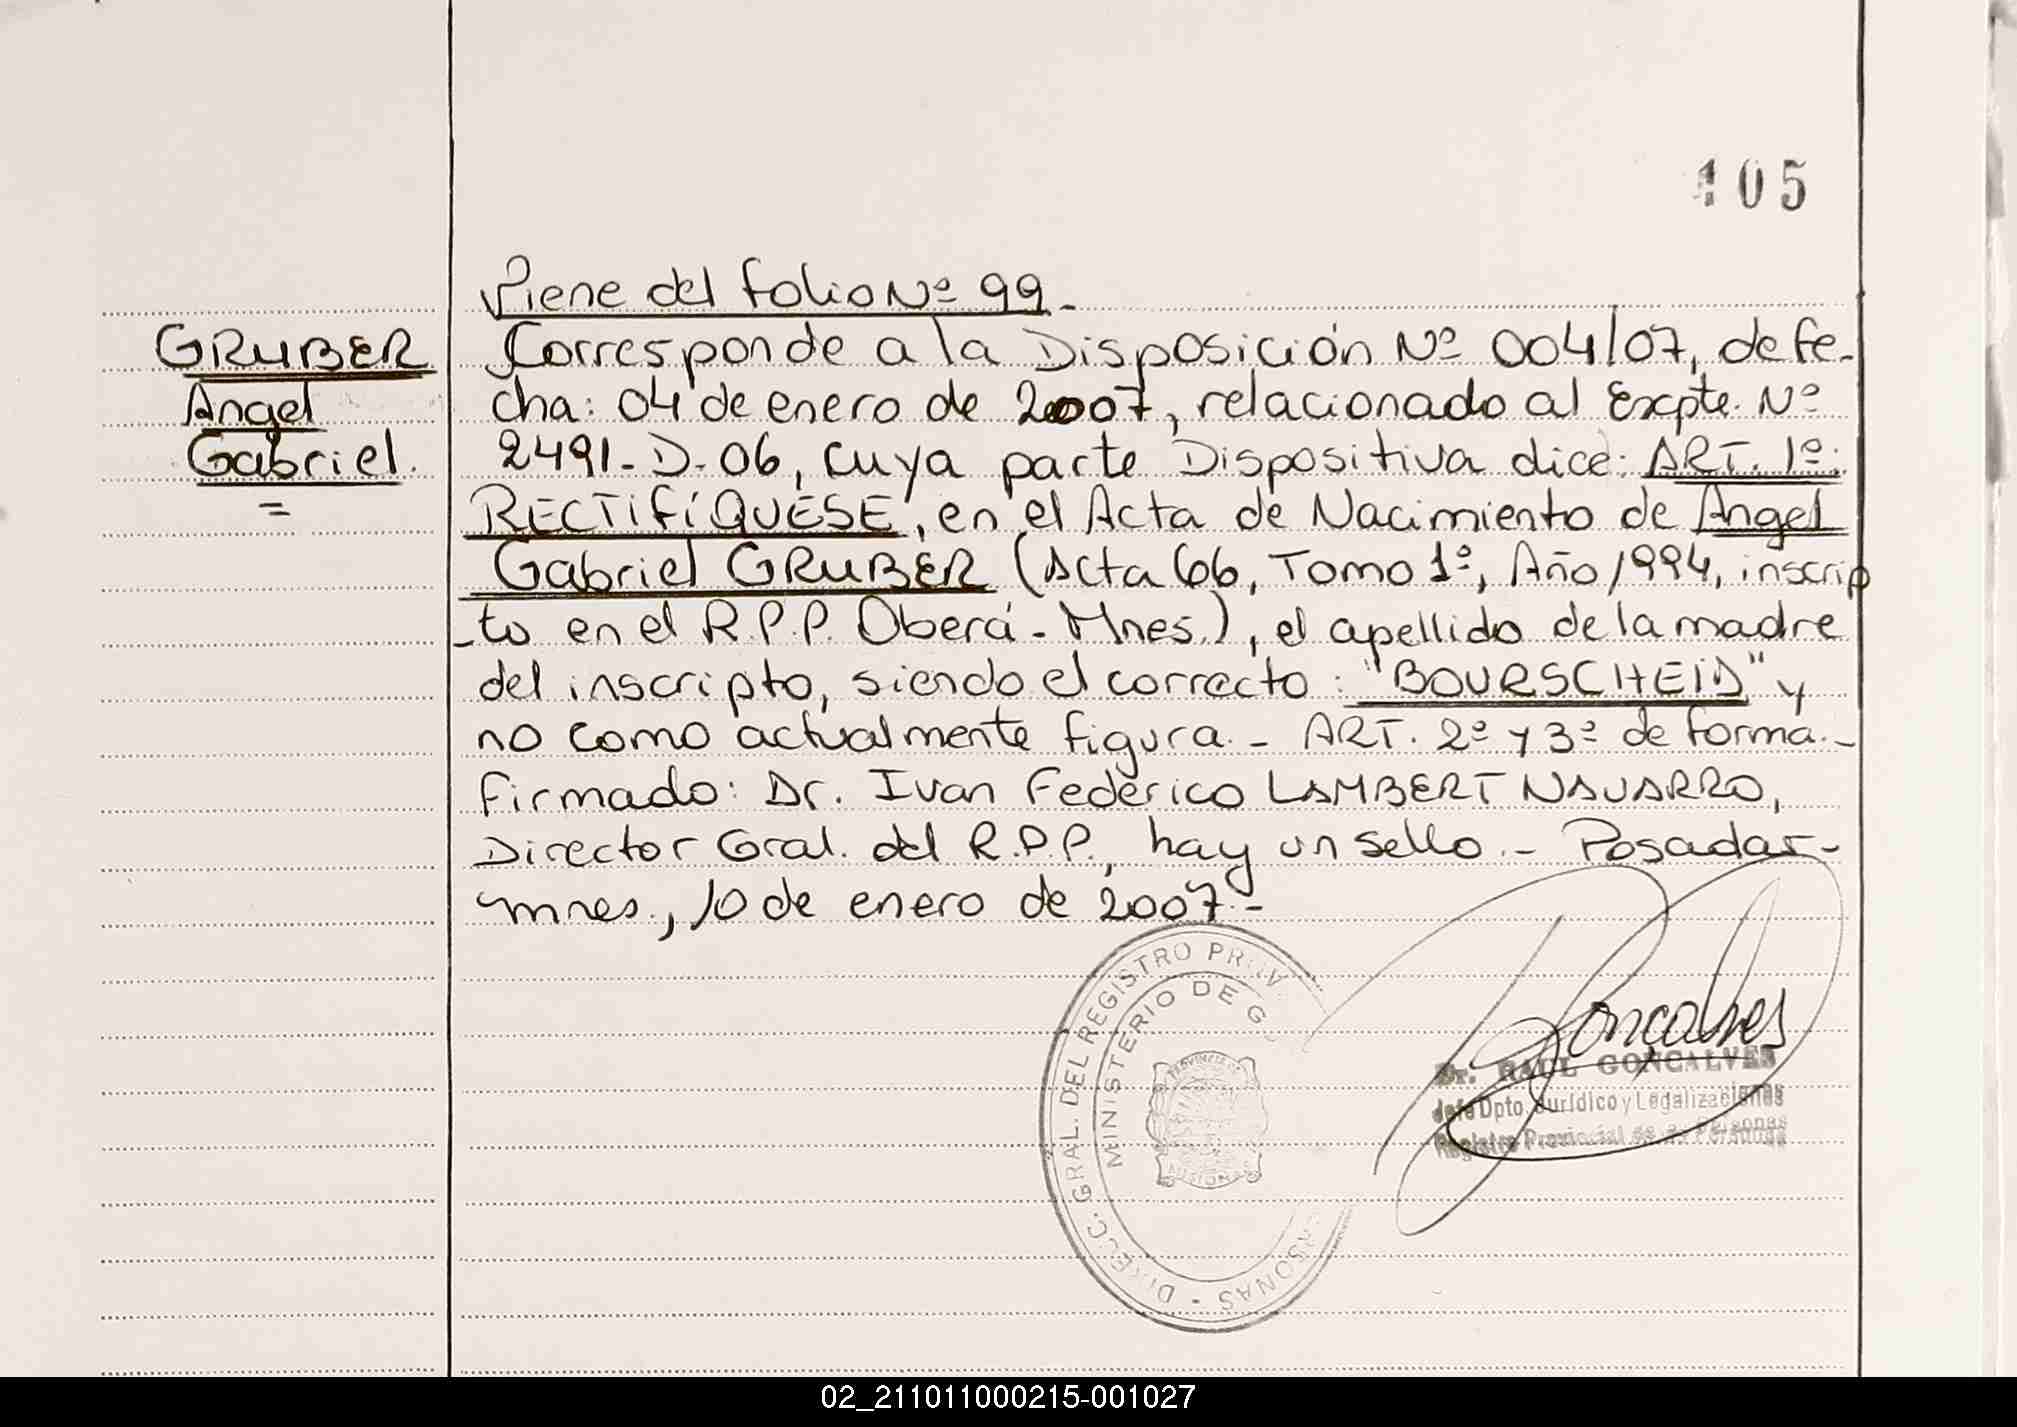 105
Viene del folio Nº 99.-
GRUBER
Angel
Gabriel.
=
Corresponde a la Disposición Nº 004/07, de fe-
cha: 04 de enero de 2007, relacionado al Expte. Nº
2491-D-06, cuya parte Dispositiva dice: ART. 1º:
RECTIFÍQUESE, en el Acta de Nacimiento de Angel
Gabriel GRUBER (Acta 66, Tomo 1º, Año 1994, inscrip
-to en el R.P.P. Oberá - Mnes.), el apellido de la madre
del inscripto, siendo el correcto: "BOURSCHEID" y
no como actualmente figura.- ART. 2º y 3º de forma.-
Firmado: Dr. Ivan Federico LAMBERT NAVARRO,
Director Gral. del R.P.P., hay un sello.- Posadas-
mnes., 10 de enero de 2007.-
DIRECC. GRAL. DEL REGISTRO PROV
MINISTERIO DE G
PROVINCIA
MISIONES
Gonçalves
Dr. RAUL GONÇALVES
Jefe Dpto. Jurídico y Legalizaciones
Registro Provincial de Personas
02_211011000215-001027